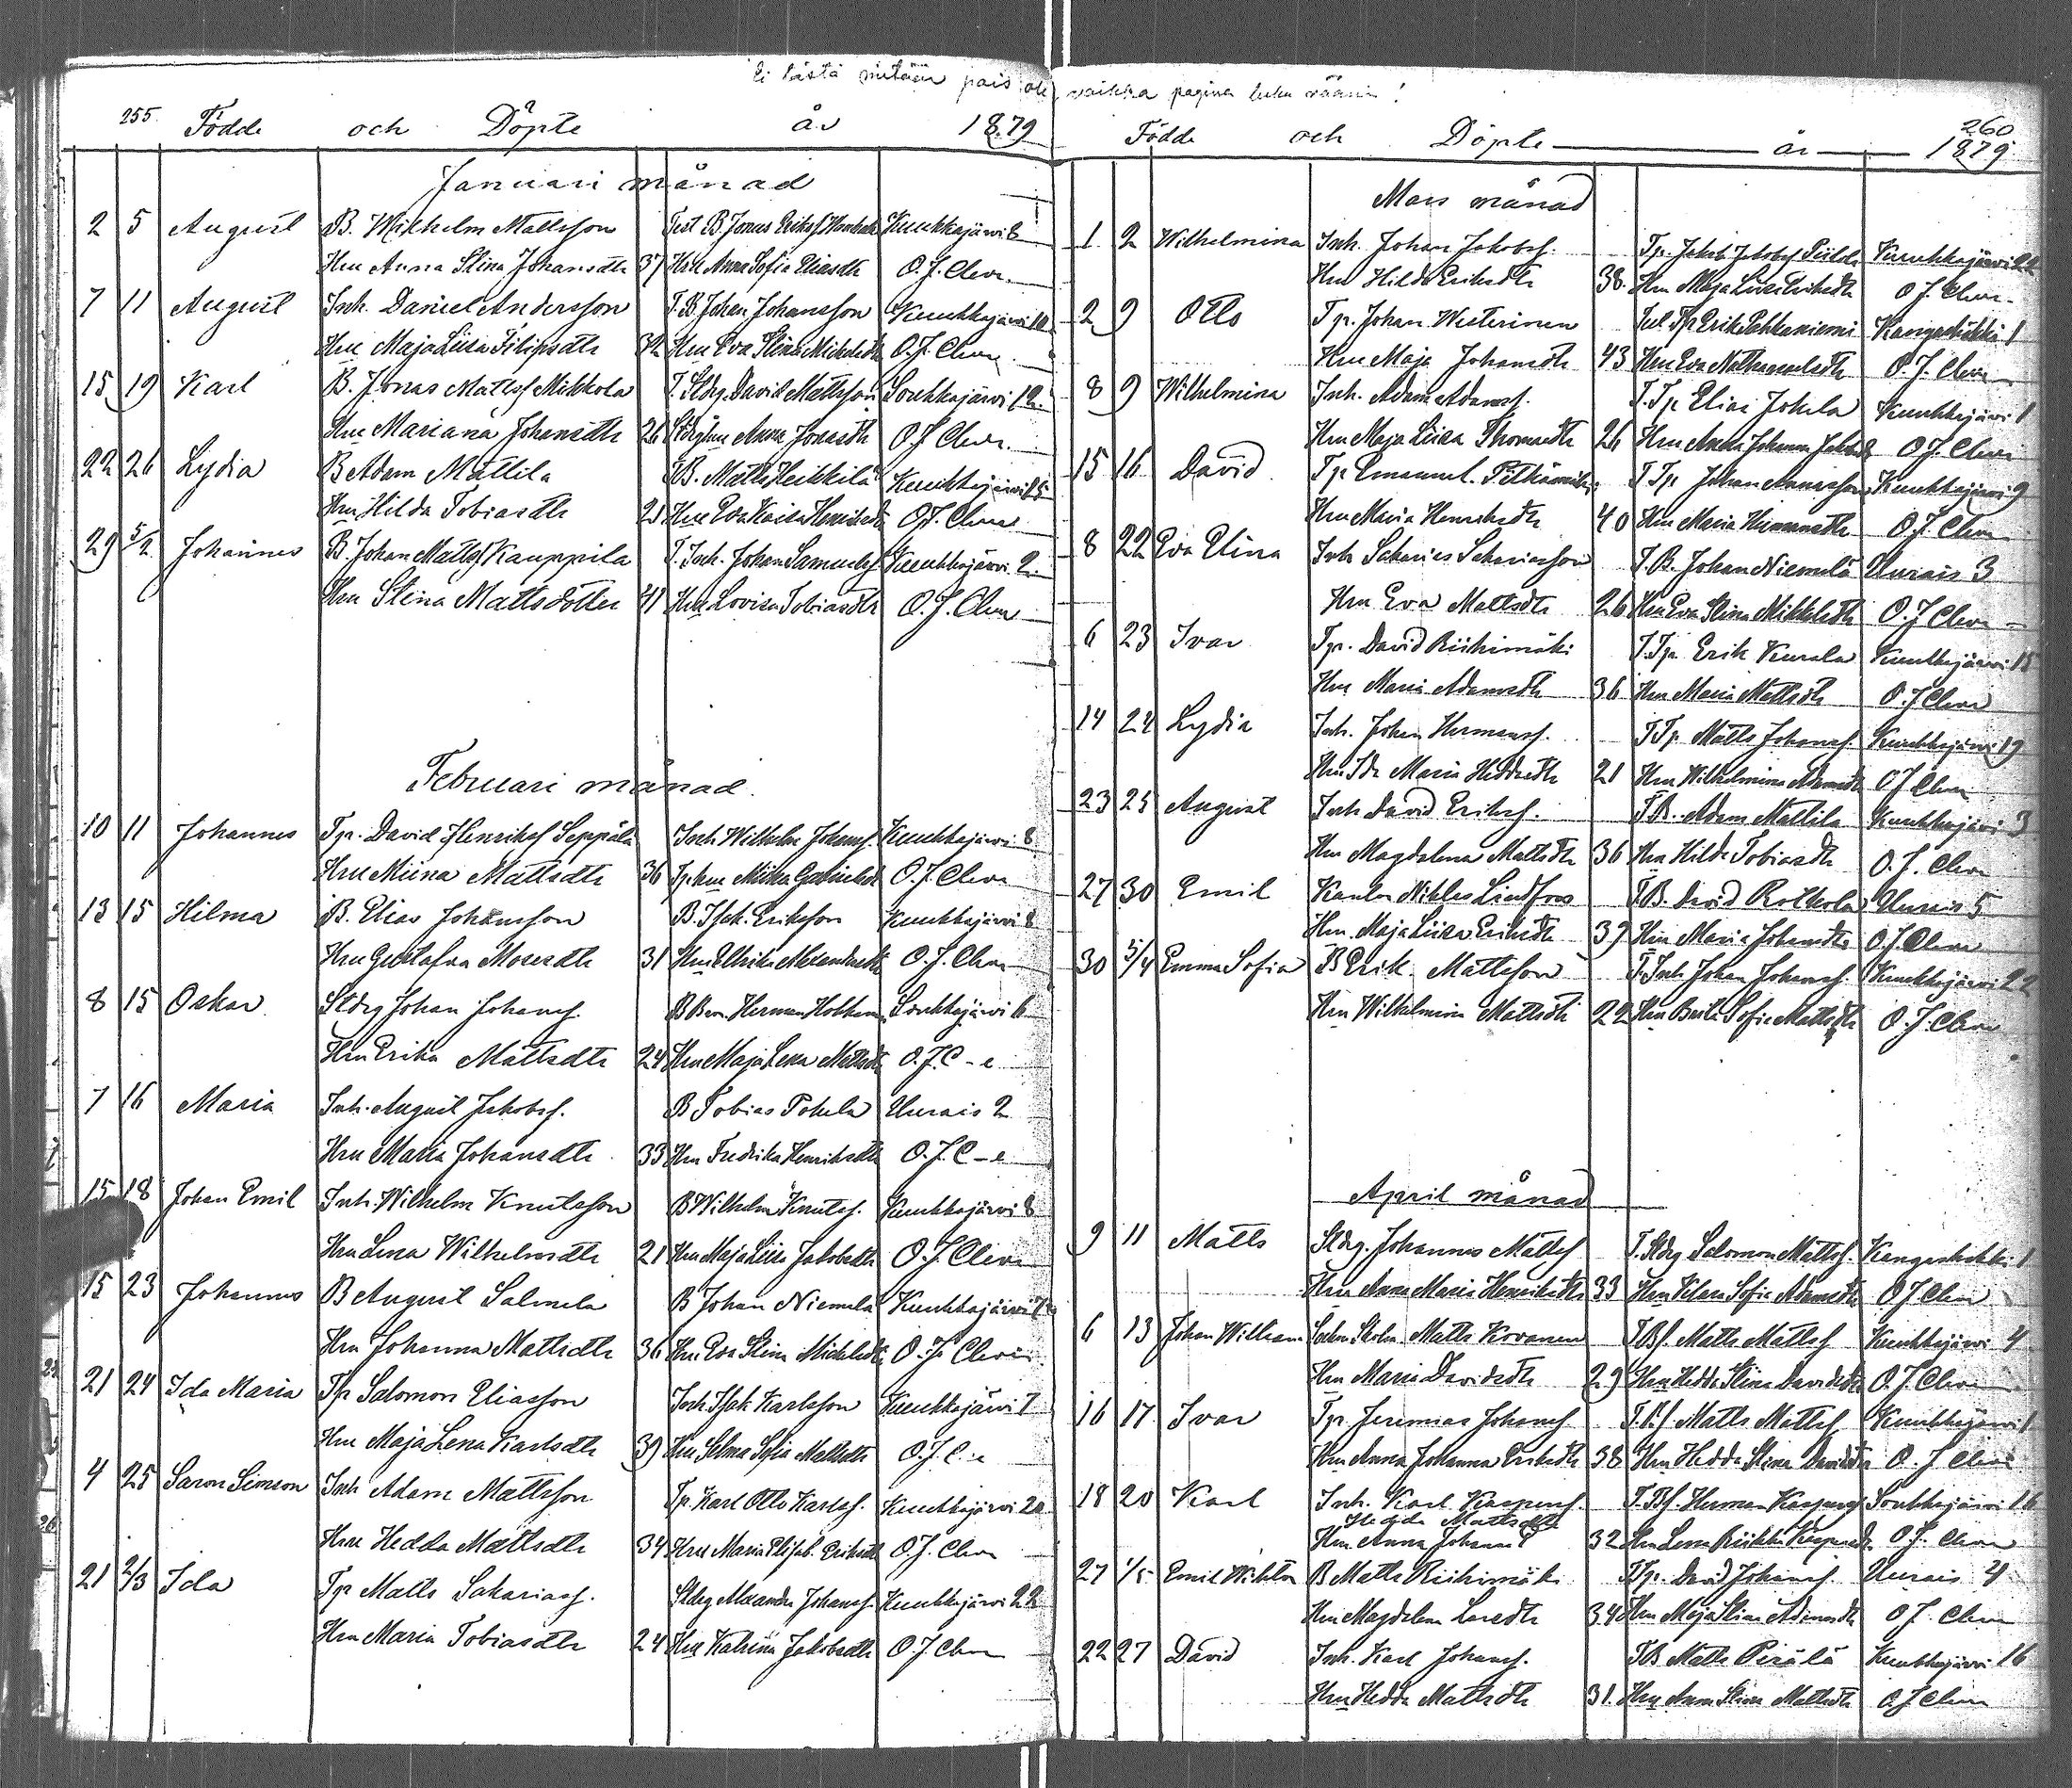 Ei tästä mitään pois ole, vaikka pagina luku väärin!
255 Födde och Döpte år 1879
Januari månad
2 5 August B. Wilhelm Mattsson Test B. Jonas Eriksf. Kuukkajärvi 8
Hru Anna Stina Johansdtr 37 Hru Anna Sofia Eliasdtr O. J. Cleve.
7 11 August Inh. Daniel Andersson T. B. Johan Johansson Kuukkajärvi 10
Hru Maja Liisa Filipsdtr 32 Hru Eva Stina Mickelsdtr O. J. Cleve
15 19 Karl B. Jonas Mattsf Mikkola T. Stdrg. David Mattsson Soukkajärvi 12.
Hru Mariana Johansdtr 26 Stdrg hru Anna Jonasdtr O. J. Cleve.
22 26 Lydia B Adam Mattila T B. Matts Heikkilä Kuukkajärvi 15
Hru Hilda Tobiasdtr 21 Hru Eva Kaisa Henriksdtr O. J. Cleve
29 5/2 Johannes B. Johan Mattsf Kauppila T. Inh. Johan Samuelsf. Kuukkajärvi 2.
Hru Stina Mattsdotter 41 Hru Lovisa Tobiasdtr O. J. Cleve
Februari månad.
10 11 Johannes Tp. David Henriksf Seppälä Inh Wilhelm Johansf. Kuukkajärvi 8
Hru Miina Mattsdtr 36 Tp hru Miina O. J. Cleve
13 15 Hilma B. Elias Johansson B. Isak Eriksson Kuukkajärvi 8
Hru Gustafva Mosesdtr 31 Hru Ulrika Alexandersdtr O. J. Cleve
8 15 Oskar Stdrg Johan Johansf. B Herman Soukkajärvi 6
Hru Erika Mattsdtr 24 Hru Maja Lena Mattsdtr O. J. C-e
7 16 Maria Inh. August Jakobsf. B Tobias Pokela Uurais 2
Hru Maria Johansdtr 33 Hru Fredrika Henriksdtr O. J. C-e
15 18 Johan Emil Inh. Wilhelm Knutsson B Wilhelm Knutsf. Kuukkajärvi 8
Hru Lena Wilhelmsdtr 21 Hru Maja Liisa Jakobsdtr O. J. Cleve
15 23 Johannes B August Salmela B Johan Niemelä Kuukkajärvi
Hru Johanna Mattsdtr 36 Hru Eva Stina Mickelsdtr O. J. Cleve
21 24 Ida Maria Tp Salomon Eliasson Inh Isak Karlsson Kuukkajärvi 7
Hru Maja Lena Karlsdtr 39 Hru Selma Sofia Mattsdtr O. J. C-e
4 25 Saron Simson Inh Adam Mattsson Tp. Karl Otto Karlsf. Kuukkajärvi 20
Hru Hedda Mattsdtr 34 Hru Maria Elisab. Eriksdtr O. J. Cleve
21 2/3 Ida Tp Matts Sakariasf. Stdrg Alexander Johansf. Kuukkajärvi 22
Hru Maria Tobiasdtr 24 Hru Katrina Jakobsdtr O. J. Cleve
Födde och Döpte år 260 1879
Mars månad
1 2 Wilhelmina Inh. Johan Jakobsf. Tp. Jakob Jakobsf Kuukkajärvi 22
Hru Hilda Eriksdtr 38. Hru Maja Liisa Eriksdtr O J. Cleve.
2 9 Otto Tp. Johan Westerinen Tp Erik Pahkaniemi Kangashäkki 1
Hru Maja Johansdtr 43 Hru Eva Nathanaelsdtr O. J. Cleve
8 9 Wilhelmina Inh. Adam Adamsf. T. Tp Elias Jokela Kuukkajärvi 1
Hru Maja Liisa Thomasdtr 26 Hru Anna Johanna O. J. Cleve
15 16 David Tp Emanuel Pitkämäki T Tp Johan Kuukkajärvi 9
Hru Maria Henriksdtr 40 Hru Maria Hermansdtr O. J. Cleve
8 22 Eva Elina Inh Sakarias Sakariasson T. B. Johan Niemelä Uurais 3
Hru Eva Mattsdtr 26 Hru Eva Stina Mikkelsdtr O. J Cleve
6 23 Ivar Tp. David Riihimäki T. Tp Erik Keurala Kuukkajärvi 15
Hru Maria Adamsdtr 36 Hru Maria Mattsdtr O. J Cleve
14 24 Lydia Inh. Johan Hermansf. T Tp Matts Johansf. Kuukkajärvi 19
Hru Ida Maria 21 Hru Wilhelmina Adamsdtr O J Cleve
23 25 August Inh David Eriksf. T B. Adam Mattila Kuukkajärvi 3
Hru Magdalena Mattsdtr 36 Hru Hilda Tobiasdtr O. J. Cleve
27 30 Emil Kantor Niklas Lindfors T B. David Uurais 5
Hru Maja Liisa Eriksdtr 39 Hru Maria Johansdtr O. J. Cleve
30 5/4 Emma Sofia B Erik Mattsson T. Inh Johan Johansf. Kuukkajärvi 22
Hru Wilhelmina Mattsdtr 22 Hru Sofia Mattsdtr O. J. Cleve
April månad
9 11 Matts Stdrg. Johannes Mattsf T. Stdrg Salomon Mattsf. Kangashäkki 1
Hru Anna Maria Henriksdtr 33 Hru Sofia Adamsdtr O J Cleve
6 13 Johan William Matts Kovanen T Bf. Matts Mattsf Kuukkajärvi 4
Hru Maria Davidsdtr 29 Hru Hedda Stina Davidsdtr O. J. Cleve
16 17 Ivar Tp. Jeremias Johansf T. Bf. Matts Mattsf Kuukkajärvi 1
Hru Anna Johanna Eriksdtr 38 Hru Hedda Stina Davidsdtr O. J Cleve
18 20 Karl Inh. Karl Kaspersf. T. Bf. Herman Kaspersf Soukkajärvi 16
Hedda Mattsdtr
Hru Anna Johansd 32 Hru Lena Kaspersdtr O. J. Cleve
27 1/5 Emil Wiktor B Matts Riihimäki T Tp. David Johansf. Uurais 4
Hru Magdalena 34 Hru Maja Stina Adamsdtr O J. Cleve
22 27 David Inh. Karl Johansf. T B Matts Pirälä Kuukkajärvi 16
Hru Hedda Mattsdtr 31. Hru Anna Stina Mattsdtr O. J Cleve